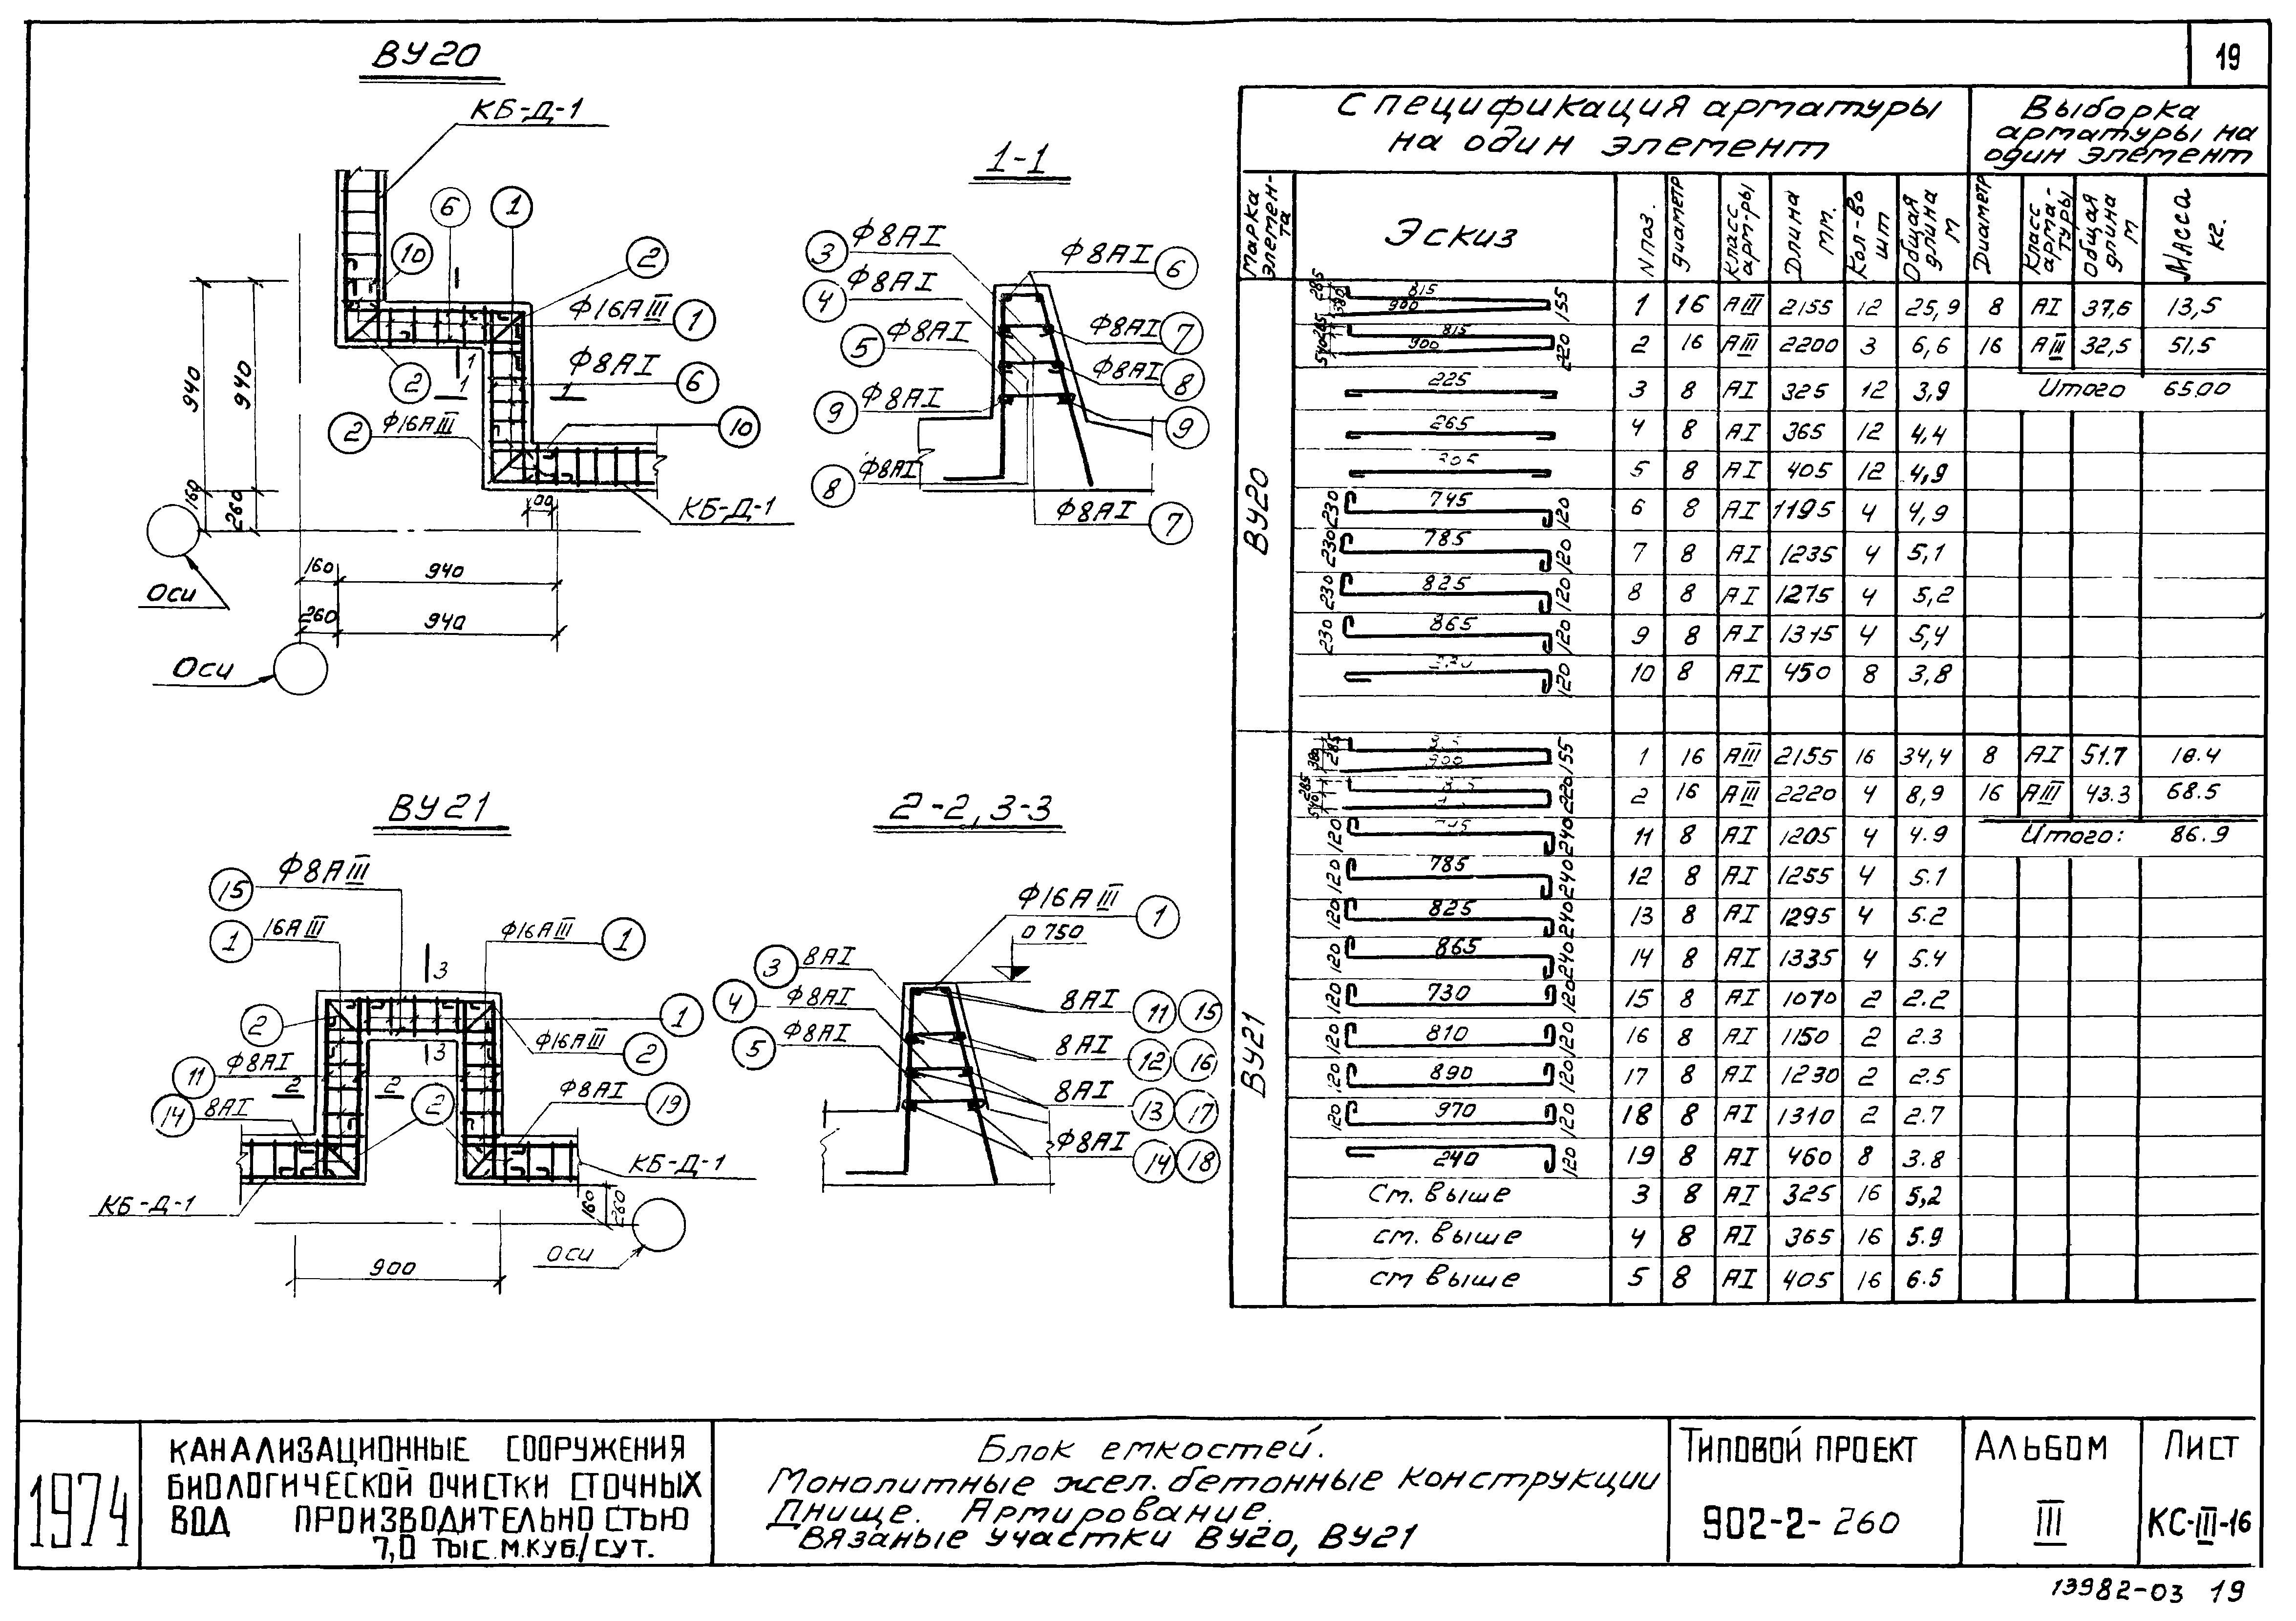 19
ВУ20
КБ-Д-1
6
1
10
2
Ф16АIII 1
1
1
1
2
Ф8АI 6
2 Ф16АIII
10
КБ-Д-1
940
940
160
260
00
160
940
260
940
Оси
Оси
1-1
3 Ф8АI
Ф8АI 6
4 Ф8АI
5 Ф8АI
Ф8АI 7
Ф8АI 8
9 Ф8АI
9
8 Ф8АI
Ф8АI 7
ВУ21
15 Ф8АIII
1 16АIII
Ф16АIII 1
3
2
1
Ф16АIII 2
3
11 Ф8АI
2
2
14 8АI
2
Ф8АI 19
КБ-Д-1
КБ-Д-1
160
260
Оси
900
2-2, 3-3
Ф16АIII 1
0 750
3 8АI
4 Ф8АI
5 Ф8АI
8АI 11 15
8АI 12 16
8АI 13 17
Ф8АI 14 18
Спецификация арматуры на один элемент
Выборка арматуры на один элемент
Марка элемен-та
Эскиз
N поз.
диаметр
Класс арм-ры
Длина мм.
Кол-во шт
Общая длина м
Диаметр
Класс арма-туры
Общая длина м
Масса кг.
ВУ20
285 380 815 900 155 1 16 АIII 2155 12 25,9 8 АI 37,6 13,5
540 285 815 900 220 2 16 АIII 2200 3 6,6 16 АIII 32,5 51,5
225 3 8 АI 325 12 3,9 Итого 65.00
265 4 8 АI 365 12 4,4
305 5 8 АI 405 12 4,9
230 745 120 6 8 АI 1195 4 4,9
230 785 120 7 8 АI 1235 4 5,1
230 825 120 8 8 АI 1275 4 5,2
230 865 120 9 8 АI 1315 4 5,4
120 10 8 АI 450 8 3,8
ВУ21
380 285 900 155 1 16 АIII 2155 16 34,4 8 АI 51.7 18.4
540 285 220 2 16 АIII 2220 4 8,9 16 АIII 43.3 68.5
120 240 11 8 АI 1205 4 4.9 Итого: 86.9
120 785 240 12 8 АI 1255 4 5.1
120 825 240 13 8 АI 1295 4 5.2
120 865 240 14 8 АI 1335 4 5.4
120 730 120 15 8 АI 1070 2 2.2
120 810 120 16 8 АI 1150 2 2.3
120 890 120 17 8 АI 1230 2 2.5
120 970 120 18 8 АI 1310 2 2.7
240 120 19 8 АI 460 8 3.8
Ст. выше 3 8 АI 325 16 5,2
ст. выше 4 8 АI 365 16 5.9
ст выше 5 8 АI 405 16 6.5
1974
КАНАЛИЗАЦИОННЫЕ СООРУЖЕНИЯ
БИОЛОГИЧЕСКОЙ ОЧИСТКИ СТОЧНЫХ
ВОД ПРОИЗВОДИТЕЛЬНОСТЬЮ
7,0 ТЫС.М.КУБ./СУТ.
Блок емкостей.
Монолитные жел.бетонные конструкции
Днище. Армирование.
Вязаные участки ВУ20, ВУ21
ТИПОВОЙ ПРОЕКТ
902-2-260
АЛЬБОМ
III
ЛИСТ
КС-III-16
13982-03 19